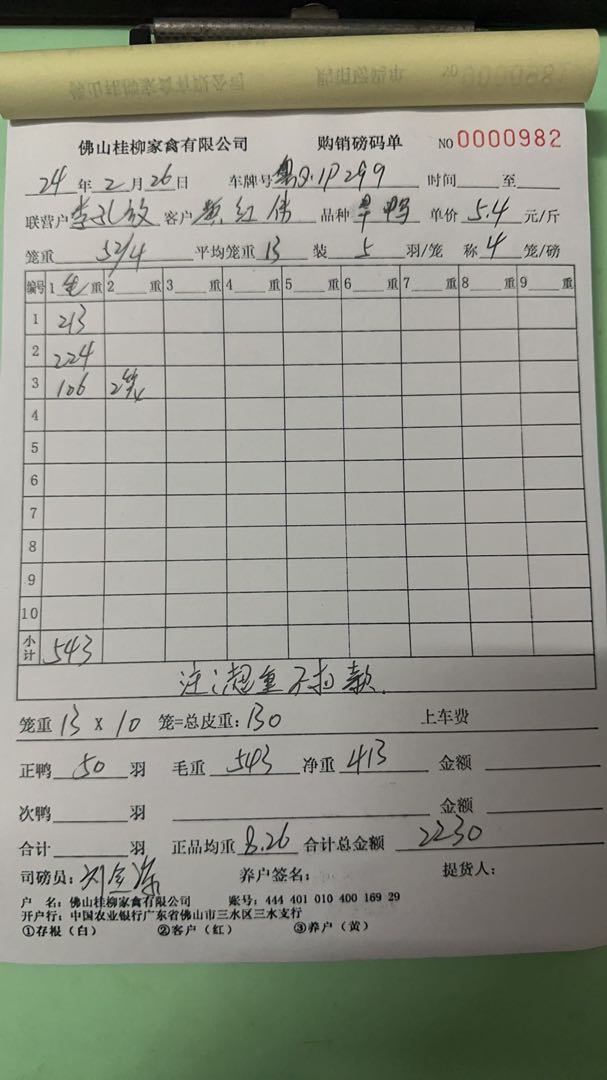 佛山桂柳家禽有限公司 购销磅码单 NO 0000982
24年2月26日 车牌号 1P299 时间 至
联营户 李孔 客户 黄红伟 品种 旱鸭 单价 5.4 元/斤
笼重 52/4 平均笼重 13 装 5 羽/笼 称 4 笼/磅
编号 1 毛 重 2 重 3 重 4 重 5 重 6 重 7 重 8 重 9 重
1 213
2 224
3 106 2笼
4
5
6
7
8
9
10
小计 543
注:超重不扣款.
笼重 13 X 10 笼=总皮重: 130 上车费
正鸭 50 羽 毛重 543 净重 413 金额
次鸭 羽 金额
合计 羽 正品均重 8.26 合计总金额 2230
司磅员: 刘金 养户签名: 提货人:
户 名: 佛山桂柳家禽有限公司 账号: 444 401 010 400 169 29
开户行: 中国农业银行广东省佛山市三水区三水支行
①存根(白) ②客户(红) ③养户(黄)